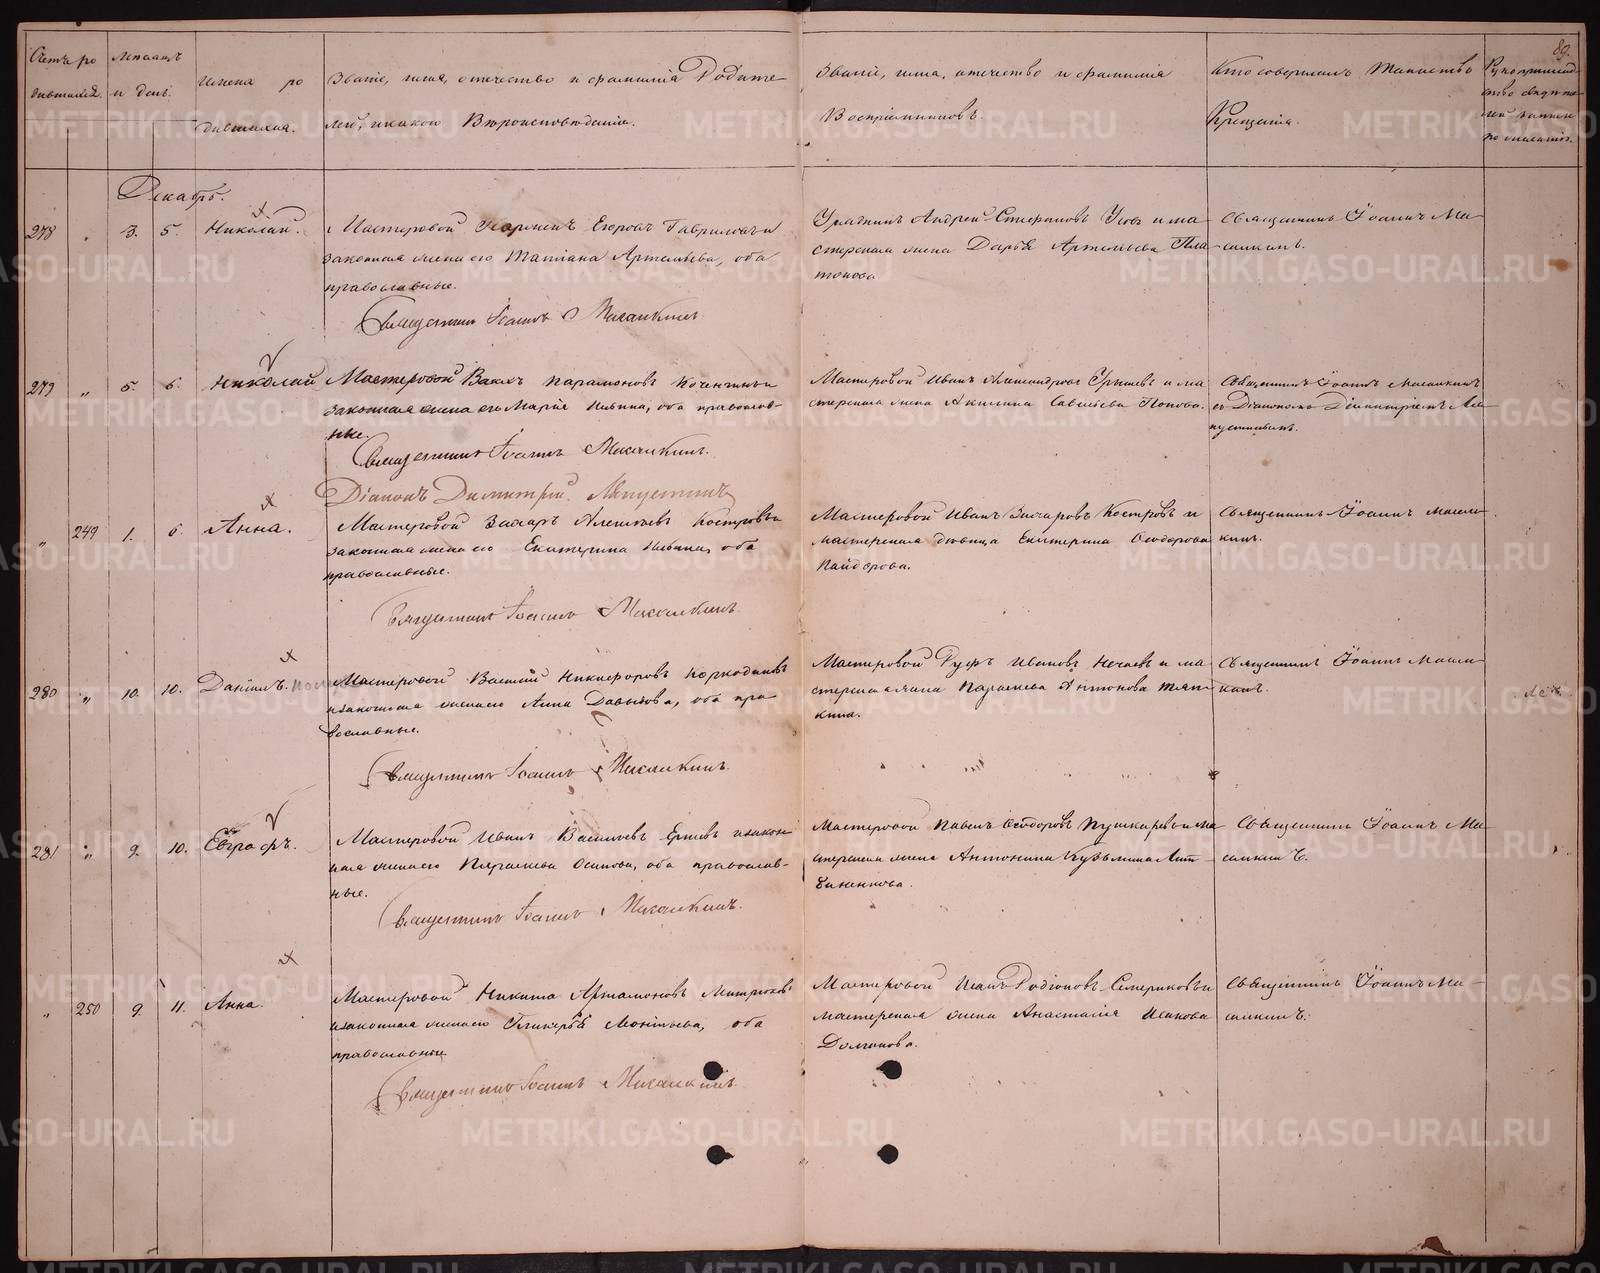 89.
Счетъ ро
дившихся.
Мѣсяцъ
и день.
Имена ро
дившихся.
Званіе, имя, отечество и фамилія Родите
лей, и какого Вѣроисповѣданія.
Званіе, имя, отечество и фамилія
Воспріемниковъ.
Кто совершалъ Таинство
Крещенія.
Рукоприклад
ство свидѣте
лей записи
по желанію.
Декабрь.
278 „ 3. 5. Николай.
Мастеровой Егоровъ Гавриловъ и
законная жена его Татіана Артемьева, оба
православные.
Священникъ Іоаннъ Масалкинъ.
Урядникъ Андрей Стефановъ Усовъ и ма
стерская жена Дарья Артемьева Пла
тонова
Священникъ Іоаннъ Ма
салкинъ.
279 „ 5. 6. Николай
Мастеровой Парамоновъ и
законная жена его Марія Ильина, оба православ-
ные.
Священникъ Іоаннъ Масалкинъ.
Діаконъ Димитрій Ляпустинъ
Мастеровой Иванъ Александровъ и ма
стерская жена Акилина Савельева Попова.
Священникъ Іоаннъ Масалкинъ
съ Діакономъ Димитріемъ Ля
пустинымъ.
„ 249 1. 6. Анна.
Мастеровой Захаръ Алексѣевъ Костровъ и
законная жена его Екатерина Ильина, оба
православные.
Священникъ Іоаннъ Масалкинъ
Мастеровой Иванъ Захаровъ Костровъ и
мастерская дѣвица Екатерина Ѳеодорова
Кайгорова.
Священникъ Іоаннъ Масал
кинъ.
280 „ 10. 10. Даніилъ.
Мастеровой Василій Никифоровъ Коркодиновъ
и законная жена его Анна Давыдова, оба пра
вославные.
Священникъ Іоаннъ Масалкинъ
Мастеровой Руфъ Ивановъ Нечаевъ и ма
стерская жена Параскева Антонова Тяп
кина.
Священникъ Іоаннъ Масал
кинъ.
281 „ 9. 10. Евграфъ.
Мастеровой Иванъ Васильевъ Ершевъ и закон
ная жена его Параскева Осипова, оба православ-
ные.
Священникъ Іоаннъ Масалкинъ.
Мастеровой Павелъ Ѳеодоровъ Пушкаревъ и ма
стерская жена Антонина Кузьмина Лит
виненкова.
Священникъ Іоаннъ Ма
салкинъ.
„ 250 9. 11. Анна.
Мастеровой Никита Артамоновъ Митюковъ
и законная жена его Гликерія Леонтьева, оба
православные
Священникъ Іоаннъ Масалкинъ
Мастеровой Исаакъ Родіоновъ Семериковъ и
мастерская жена Анастасія Исакова
Долганова.
Священникъ Іоаннъ Ма
салкинъ.
METRIKI.GASO-URAL.RU